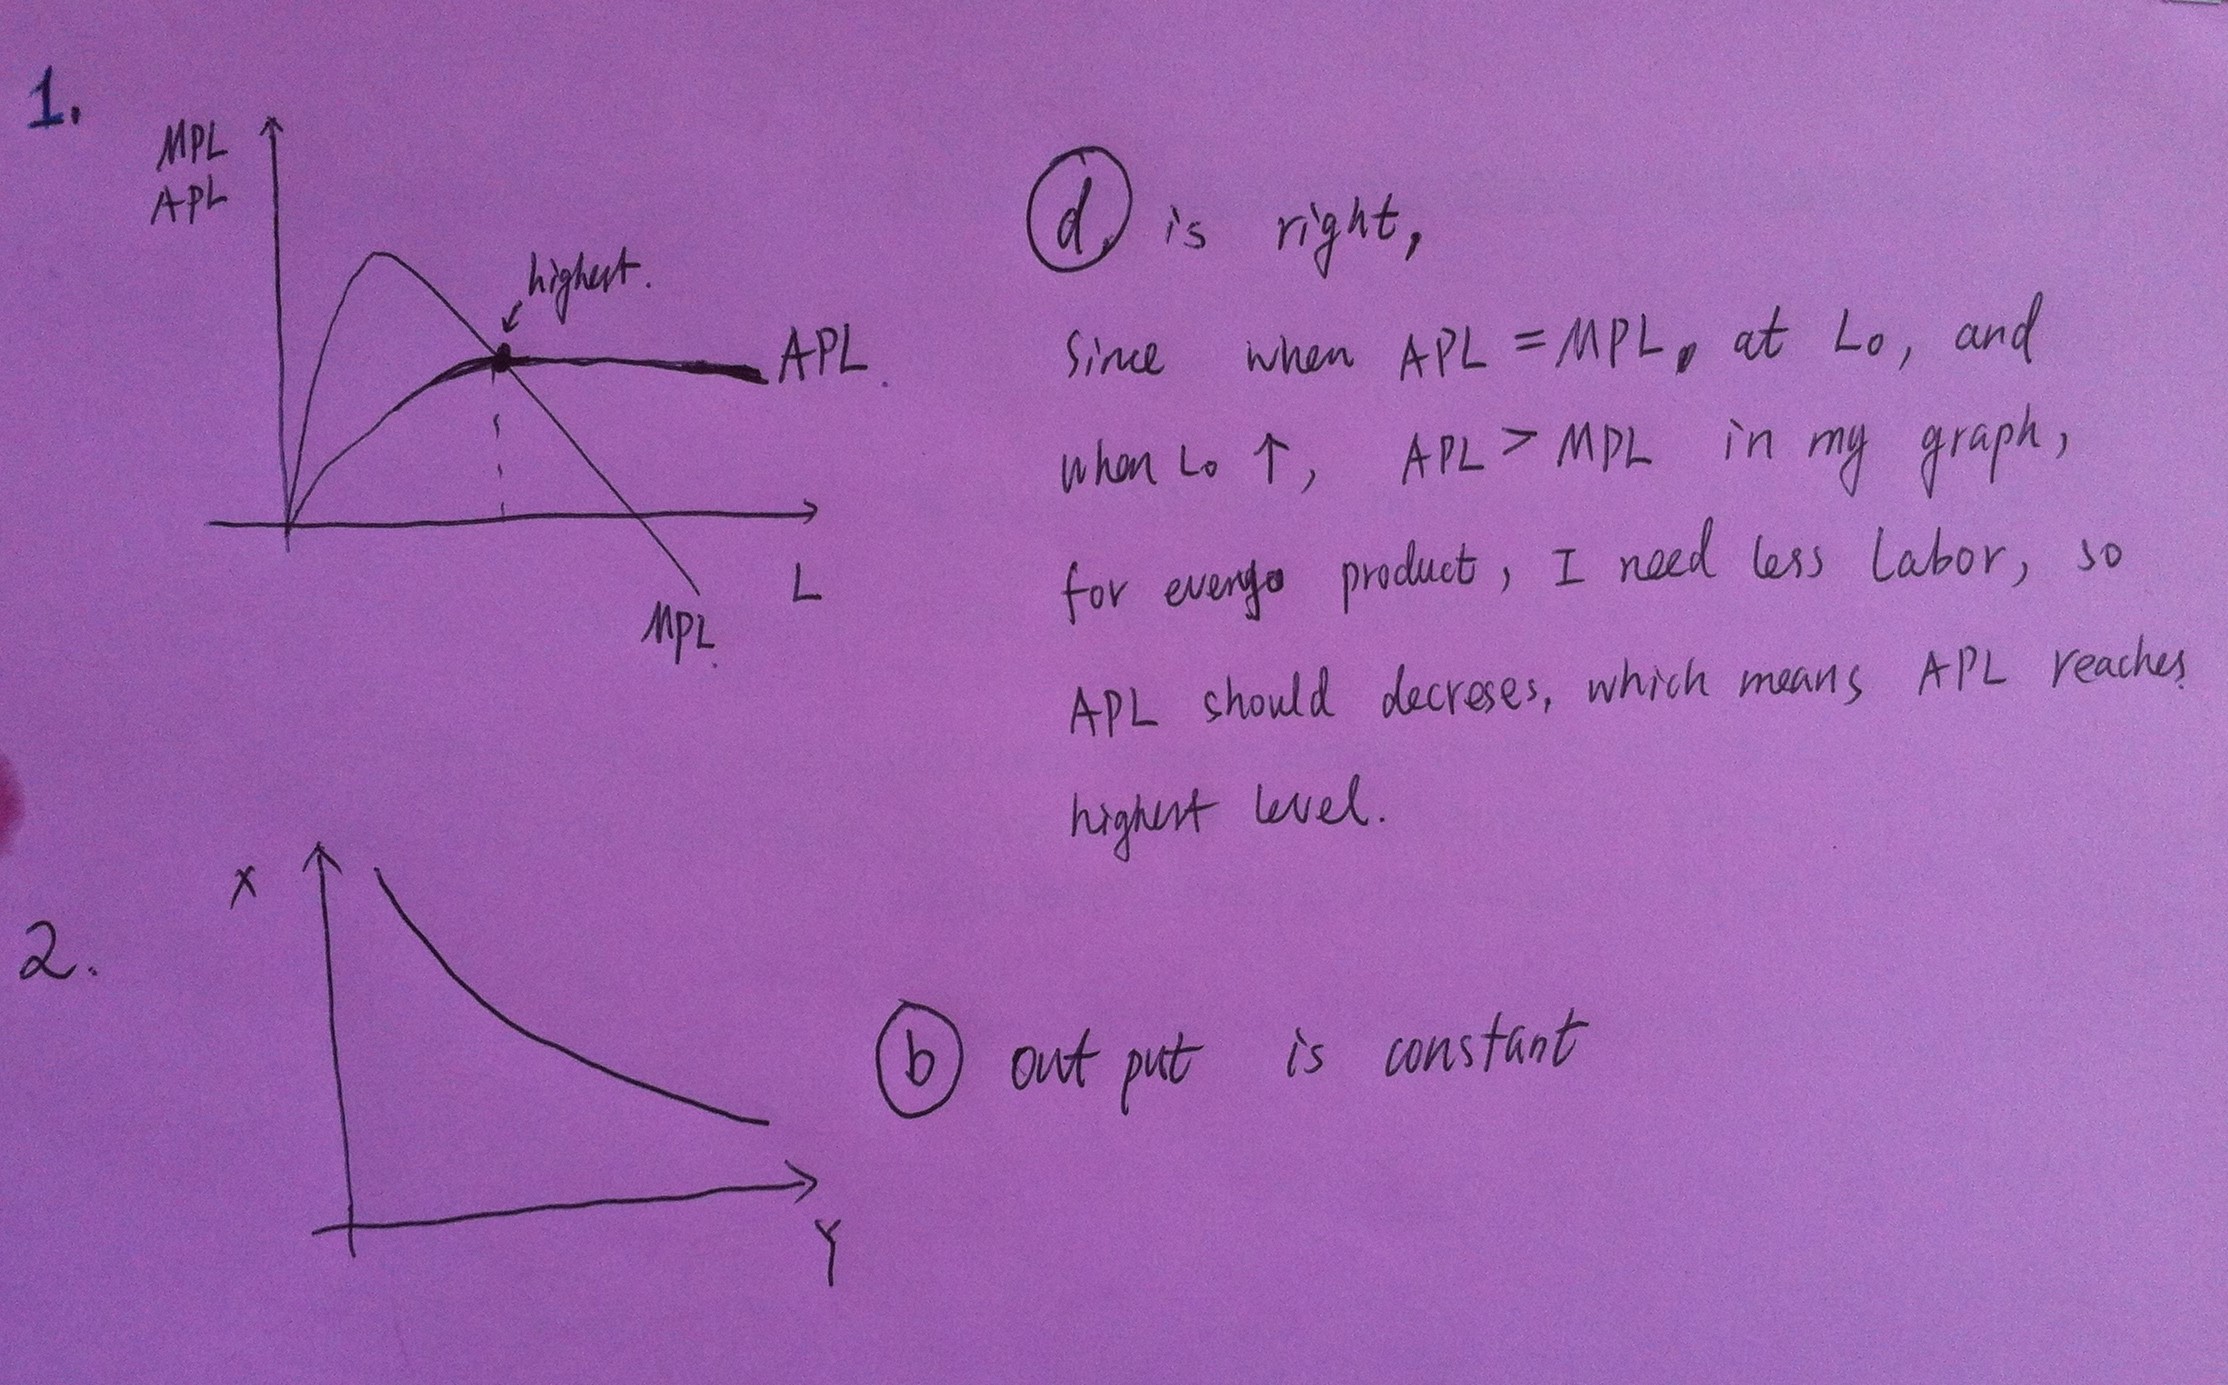 1.
MPL
APL
highest.
APL.
L
MPL.
d. is right,
Since when APL = MPL, at Lo, and
when Lo ↑, APL > MPL in my graph,
for every product, I need less Labor, so
APL should decreses, which means APL reaches
highest level.
2.
X
Y
b out put is constant